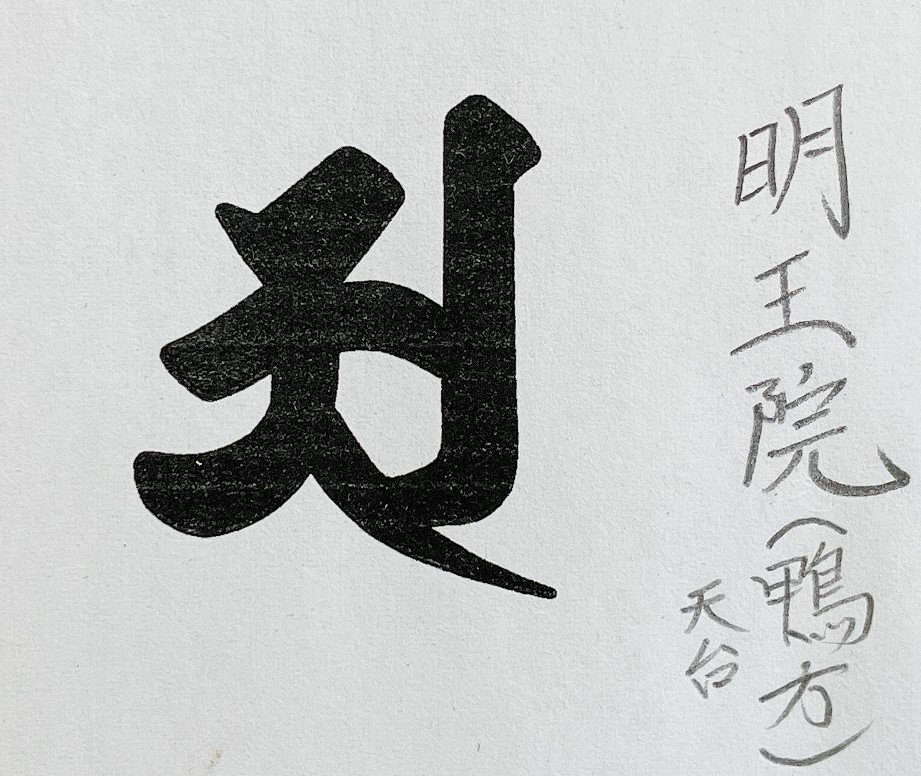 明王院(鴨方)
天台